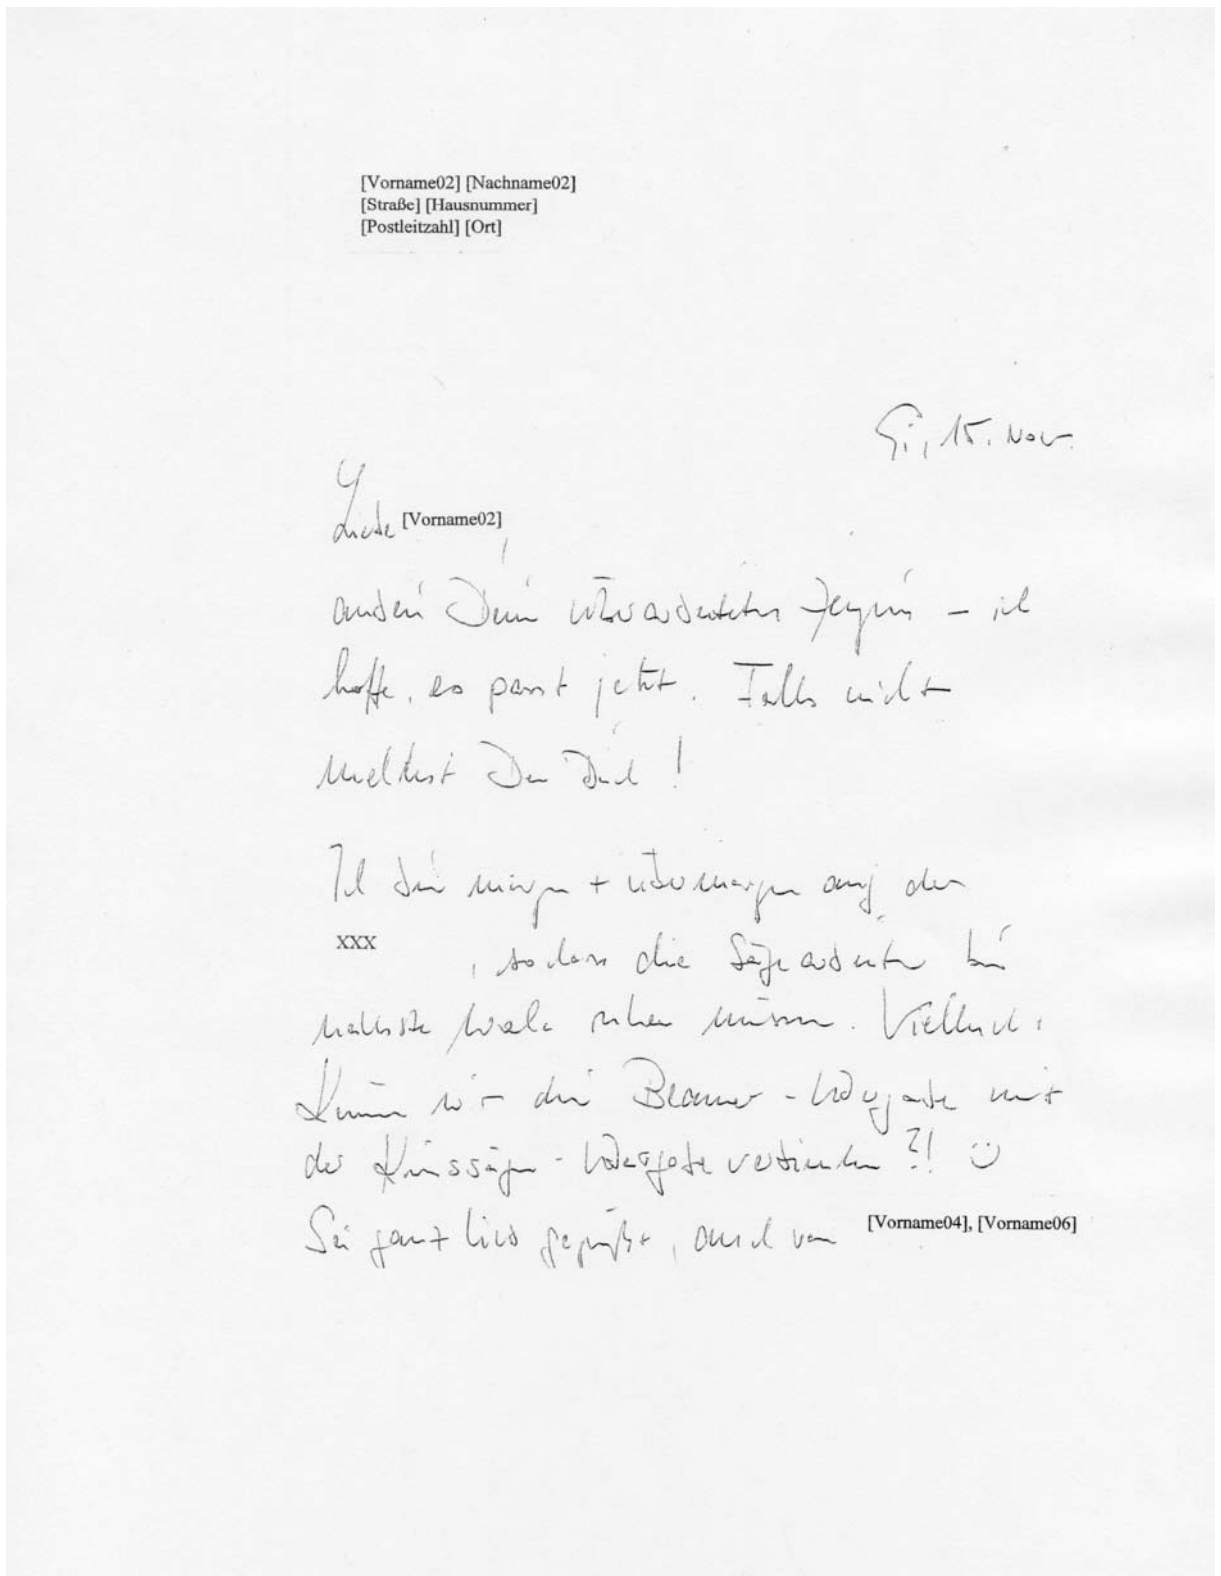 [Vorname02] [Nachname02]
[Straße] [Hausnummer]
[Postleitzahl] [Ort]
Gi, 15. Nov.
Liebe [Vorname02],
anbei Dein überarbeitetes Zeugnis – ich
hoffe, es passt jetzt. Falls nicht
meldest Du Dich!
Ich bin morgen + übermorgen auf der
xxx , sodass die Sägearbeiten bis
nächste Woche ruhen müssen. Vielleicht
können wir die Beamer-Übergabe mit
der Kreissägen-Übergabe verbinden?! ☺
Sei ganz lieb gegrüßt, auch von [Vorname04], [Vorname06]